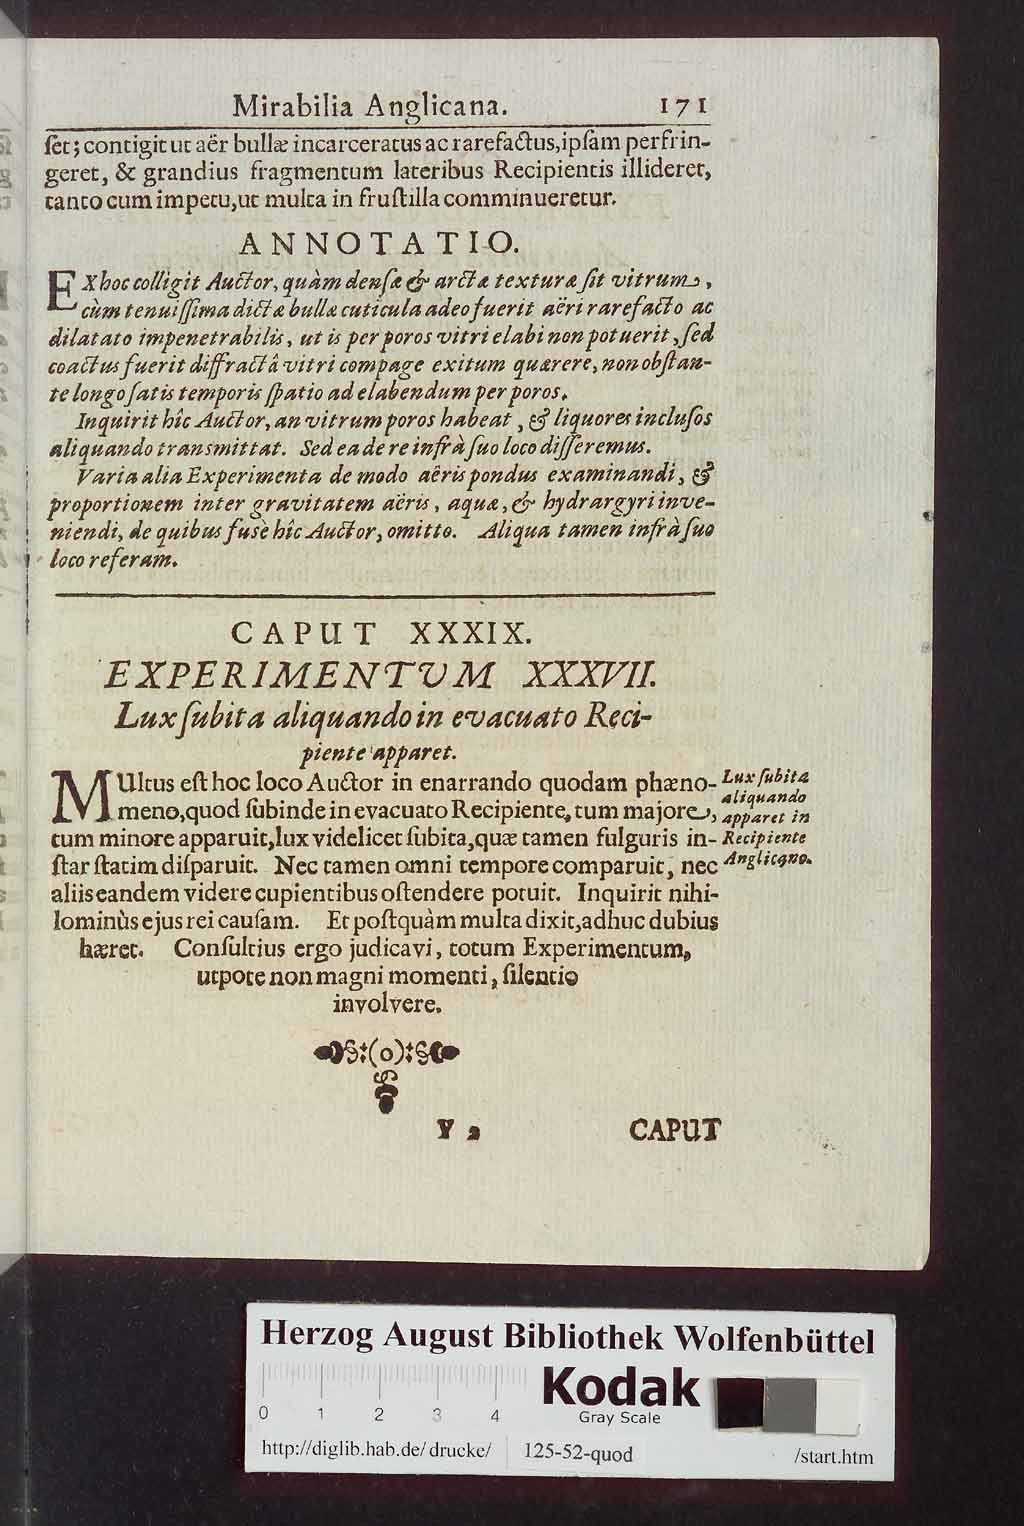 Mirabilia Anglicana. 171
ſet; contigit ut aër bullæ incarceratus ac rarefactus, ipſam perfrin-
geret, & grandius fragmentum lateribus Recipientis illideret,
tanto cum impetu, ut multa in fruſtilla comminueretur.
ANNOTATIO.
EX hoc colligit Auctor, quàm denſæ & arctæ texturæ ſit vitrum,
cùm tenuiſſima dictæ bullæ cuticula adeo fuerit aëri rarefacto ac
dilatato impenetrabilis, ut is per poros vitri elabi non potuerit, ſed
coactus fuerit diffractâ vitri compage exitum quærere, non obſtan-
te longo ſatis temporis ſpatio ad elabendum per poros.
Inquirit hîc Auctor, an vitrum poros habeat, & liquores incluſos
aliquando transmittat. Sed ea de re infrà ſuo loco diſſeremus.
Varia alia Experimenta de modo aëris pondus examinandi, &
proportionem inter gravitatem aëris, aquæ, & hydrargyri inve-
niendi, de quibus fusè hîc Auctor, omitto. Aliqua tamen infrà ſuo
loco referam.
CAPUT XXXIX.
EXPERIMENTUM XXXVII.
Lux ſubita aliquando in evacuato Reci-
piente apparet.
MUltus eſt hoc loco Auctor in enarrando quodam phæno-
meno, quod ſubinde in evacuato Recipiente, tum majore,
tum minore apparuit, lux videlicet ſubita, quæ tamen fulguris in-
ſtar ſtatim diſparuit. Nec tamen omni tempore comparuit, nec
aliis eandem videre cupientibus oſtendere potuit. Inquirit nihi-
lominùs ejus rei cauſam. Et poſtquàm multa dixit, adhuc dubius
hæret. Conſultius ergo judicavi, totum Experimentum,
utpote non magni momenti, ſilentio
involvere.
Lux ſubita
aliquando
apparet in
Recipiente
Anglicano.
§:(o):§
Y 2 CAPUT
Herzog August Bibliothek Wolfenbüttel
0 1 2 3 4
Kodak
Gray Scale
http://diglib.hab.de/drucke/ 125-52-quod /start.htm